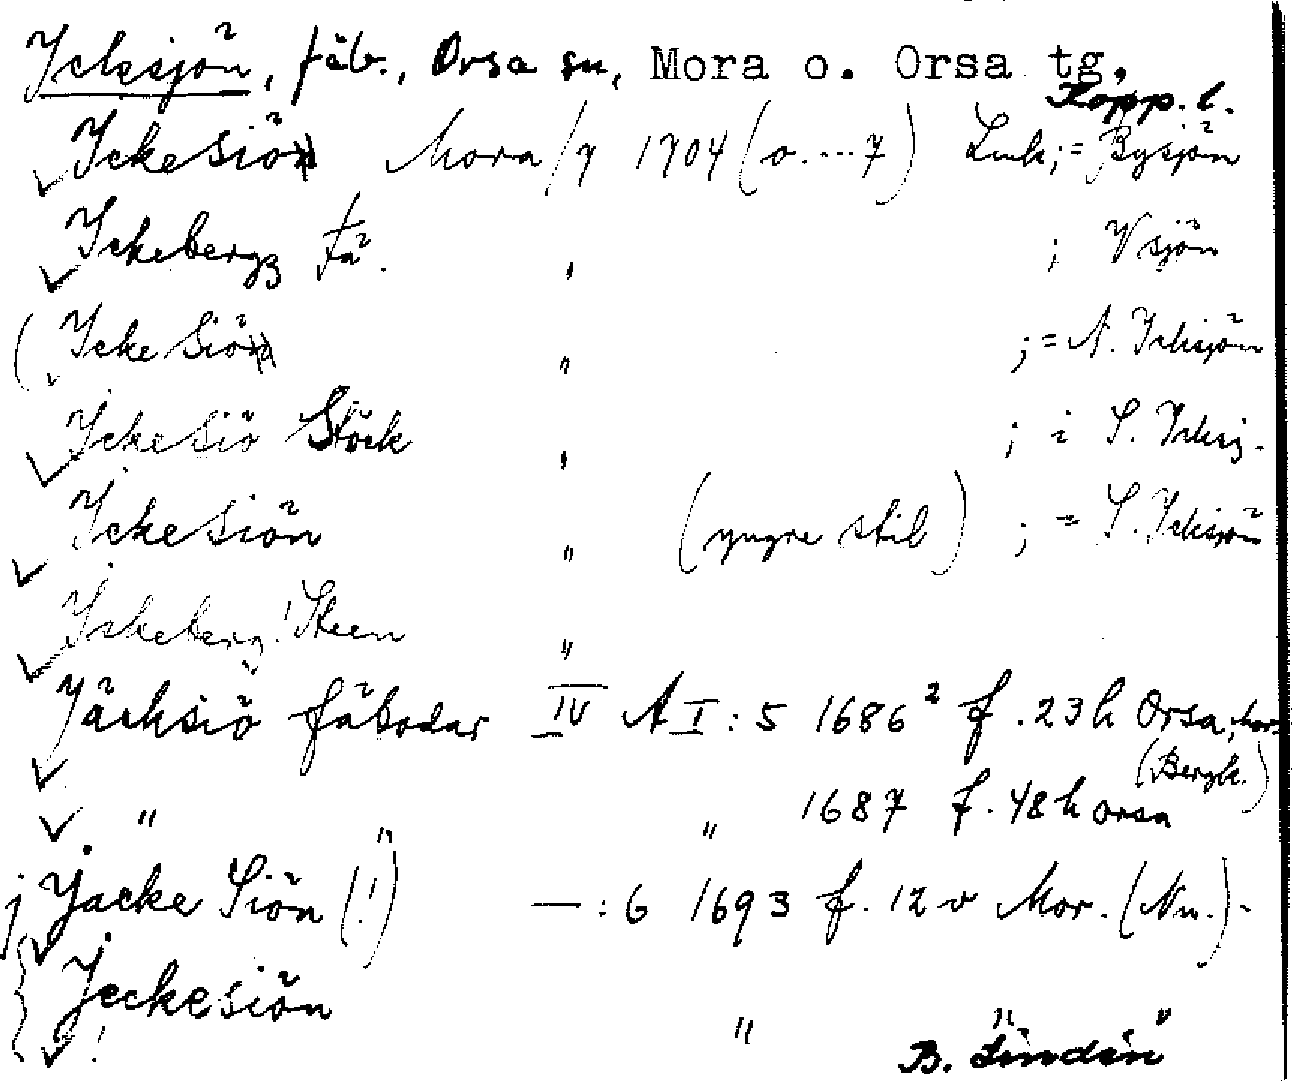 Icksjön, fäb., Orsa sn, Mora o. Orsa tg,
Kopp. l.
Ickesiön Mora/7 1704 (o....7) Lmk; = Bysjön
Ickebergz fä. " ; V sjön
(Icke Siön " ; = N. Icksjön
Ickesiö Stöck " ; i S. Icksj.
Ickesiön " (yngre stil) ; = S. Icksjön
Ickeberg! Steen "
Jäcksiö fäbodar IV A I : 5 1686² f. 23 h Orsa,
(Bergk.)
" " 1687 f. 48 h Orsa
Jacke Siön (!) — : 6 1693 f. 12 v Mor. (Nu.) -
Jeckesiön " "
! B. Lindén